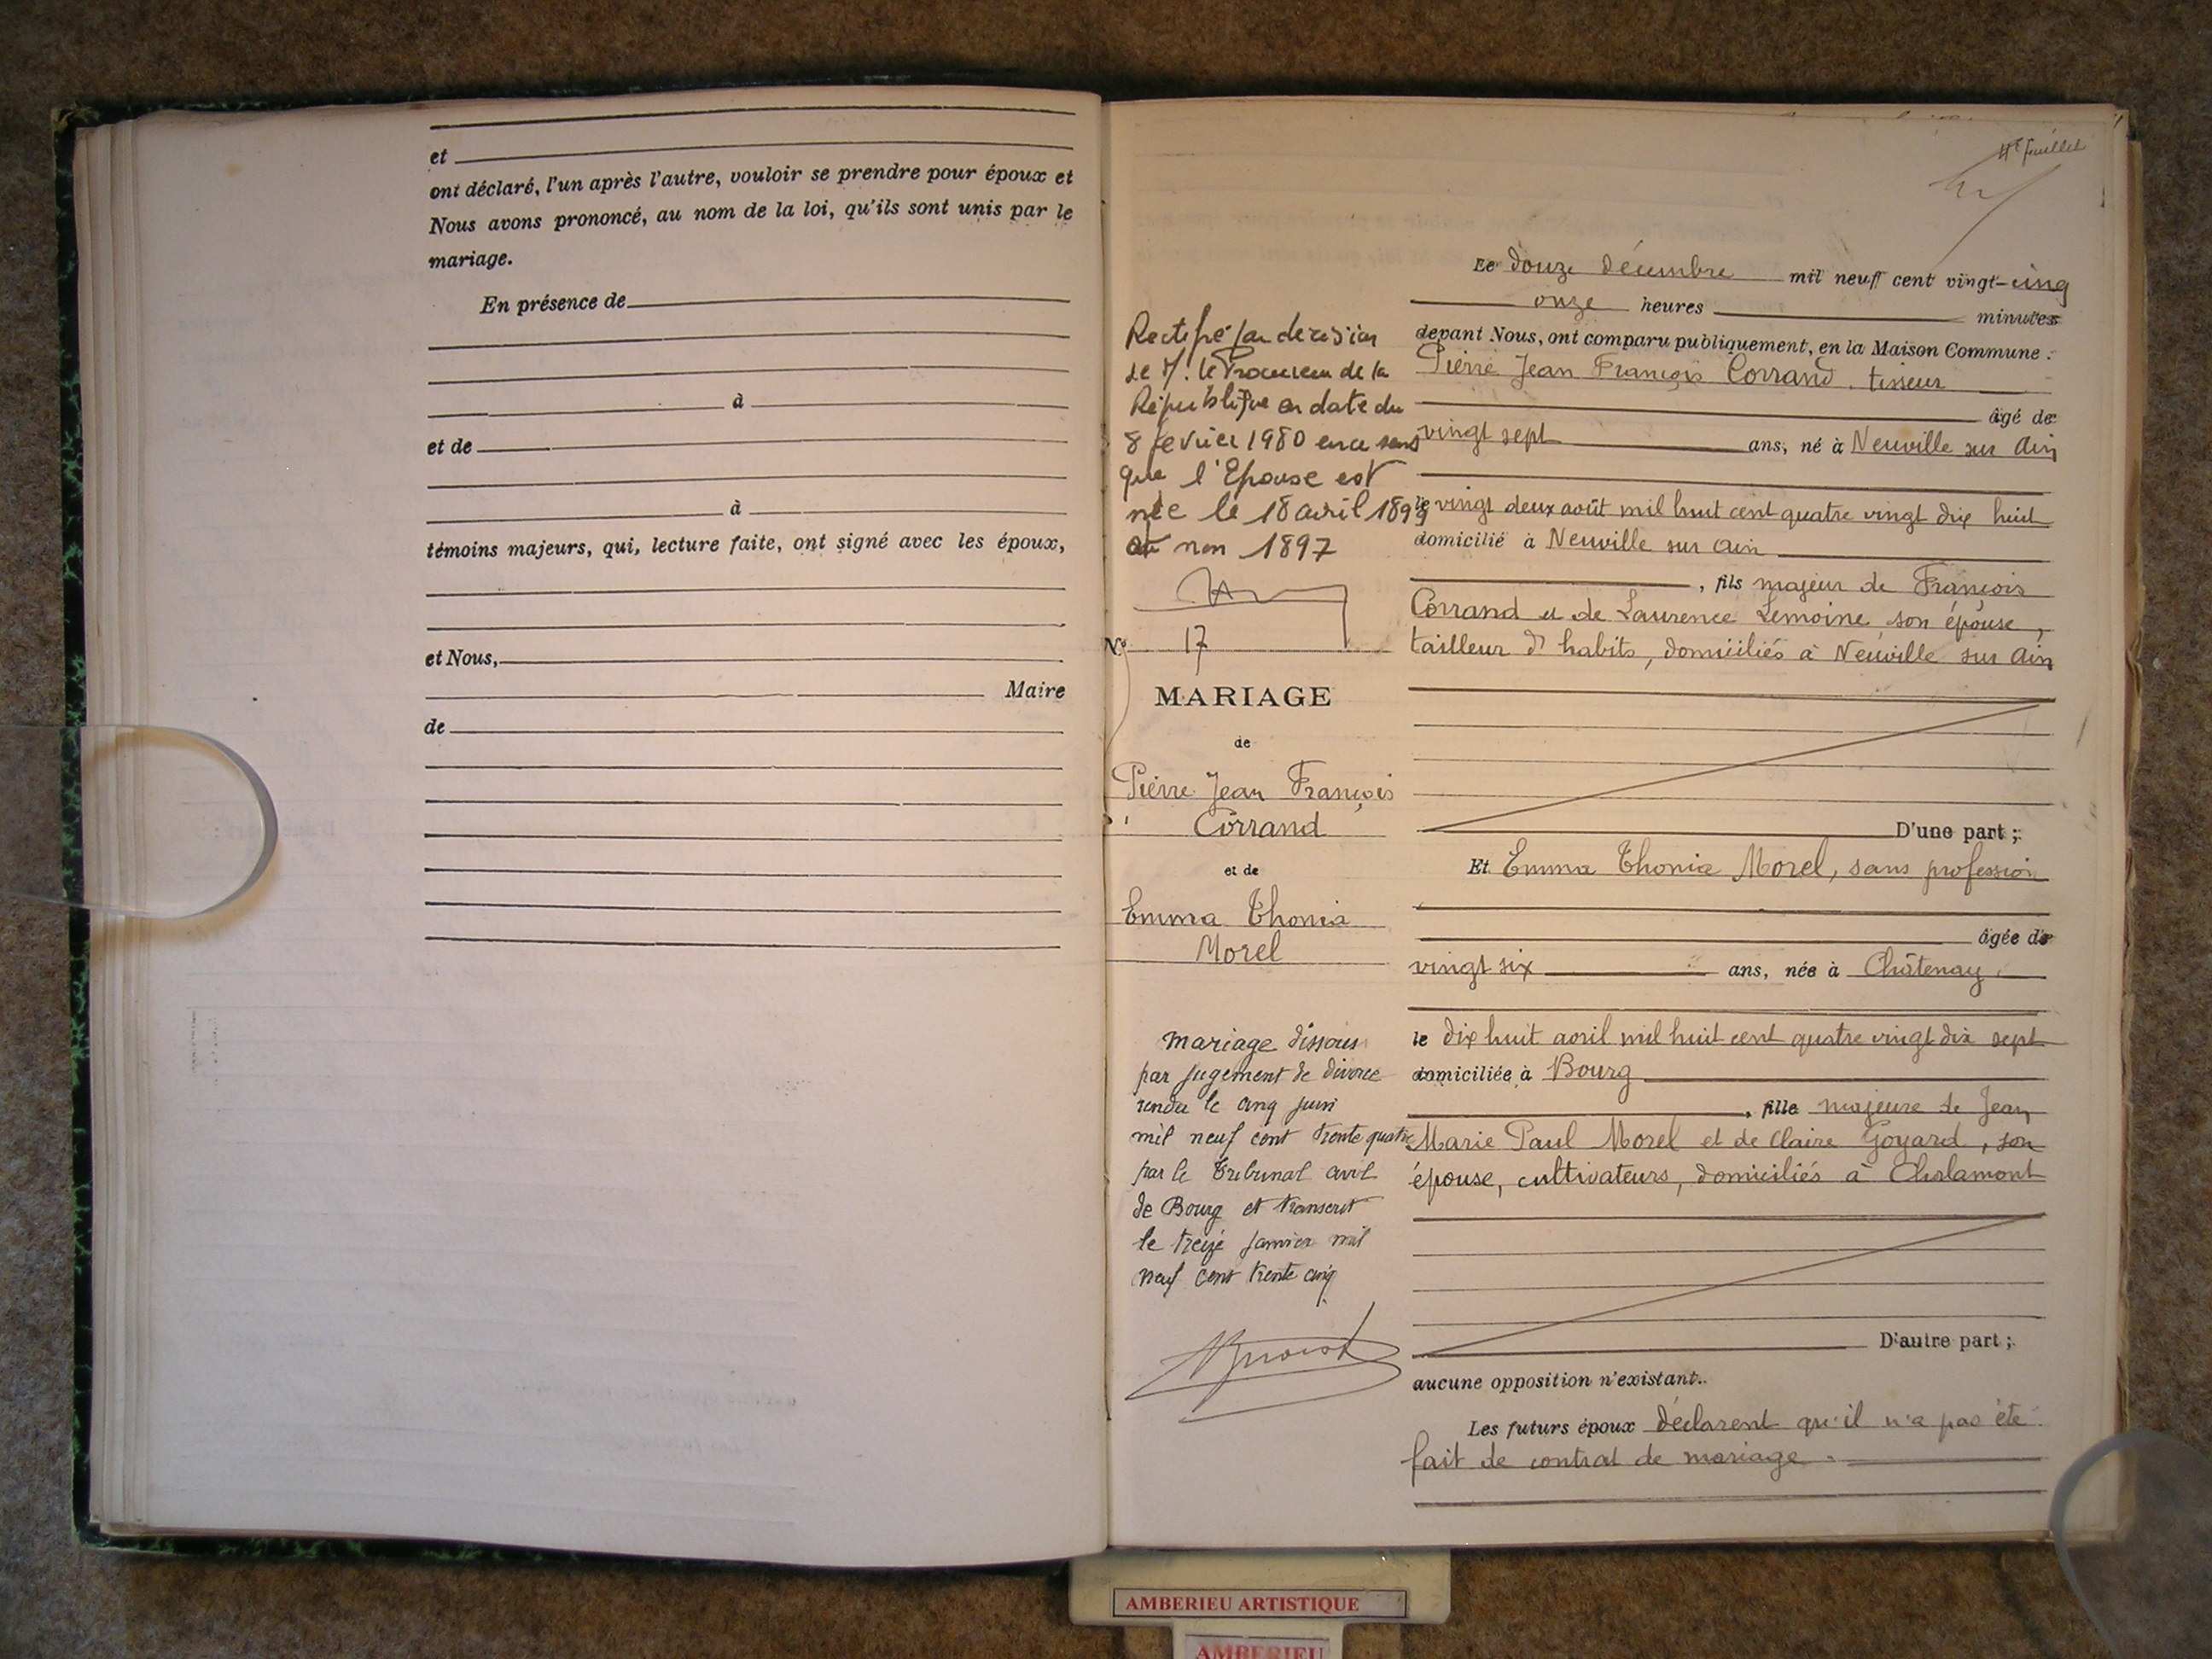 et
ont déclaré, l'un après l'autre, vouloir se prendre pour époux et
Nous avons prononcé, au nom de la loi, qu'ils sont unis par le
mariage.
En présence de
à
et de
à
témoins majeurs, qui, lecture faite, ont signé avec les époux,
et Nous,
Maire
de
feuillet
Rectifié par décision
de M. le Procureur de la
République en date du
8 février 1980 en ce sens
que l'Epouse est
née le 18 avril 1899
et non 1897
N° 17
MARIAGE
de
Pierre Jean François
Corrand
et de
Emma Thonia
Morel
Mariage dissous
par jugement de divorce
rendu le cinq juin
mil neuf cent trente quatre
par le Tribunal civil
de Bourg et transcrit
le treize janvier mil
neuf cent trente cinq
Le douze décembre mil neuf cent vingt-cinq
onze heures minutes
devant Nous, ont comparu publiquement, en la Maison Commune :
Pierre Jean François Corrand, tisseur
âgé de
vingt sept ans, né à Neuville sur Ain
le vingt deux août mil huit cent quatre vingt dix huit
domicilié à Neuville sur Ain
, fils majeur de François
Corrand et de Laurence Lemoine, son épouse,
tailleur d'habits, domiciliés à Neuville sur Ain
D'une part ;
Et Emma Thonia Morel, sans profession
âgée de
vingt six ans, née à Châtenay
le dix huit avril mil huit cent quatre vingt dix sept
domiciliée à Bourg
, fille majeure de Jean
Marie Paul Morel et de Claire Goyard, son
épouse, cultivateurs, domiciliés à Chalamont
D'autre part ;
aucune opposition n'existant.
Les futurs époux déclarent qu'il n'a pas été
fait de contrat de mariage.
AMBERIEU ARTISTIQUE
AMBERIEU